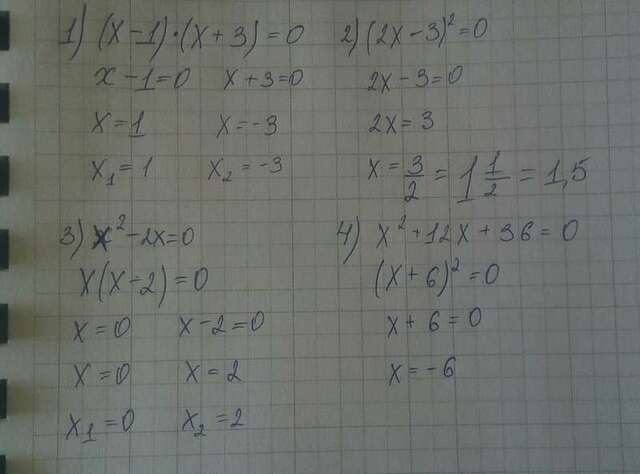 1) (x-1)·(x+3)=0
x-1=0 x+3=0
x=1 x=-3
x₁=1 x₂=-3
2) (2x-3)²=0
2x-3=0
2x=3
x=3/2=1 1/2=1,5
3) x²-2x=0
x(x-2)=0
x=0 x-2=0
x=0 x=2
x₁=0 x₂=2
4) x²+12x+36=0
(x+6)²=0
x+6=0
x=-6